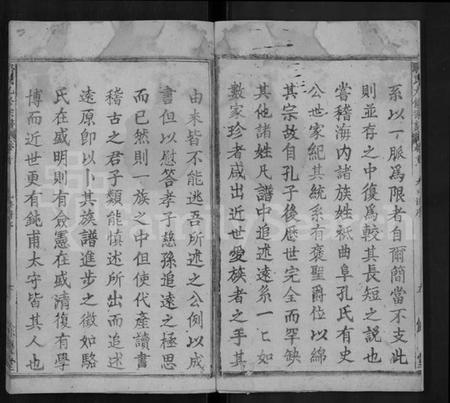 系以一脈為限者自爾簡當不支此
則並存之中復為較其長短之說也
嘗稽海內諸族姓祇曲阜孔氏有史
公世家紀其統系有褒聖爵位以綿
其宗故自孔子後歷世完全而罕缺
其他諸姓尺譜中追述遠系一一如
數家珍者咸出近世愛族者之手其
由來皆不能逃吾所述之公例以成
書但以慰答孝子慈孫追遠之極思
而已然則一族之中但使代產讀書
稽古之君子類能慎述所出而追述
遠原即以卜其族譜進步之徵如駱
氏在盛明則有僉憲在盛清復有學
博而近世更有鈍甫太守皆其人也